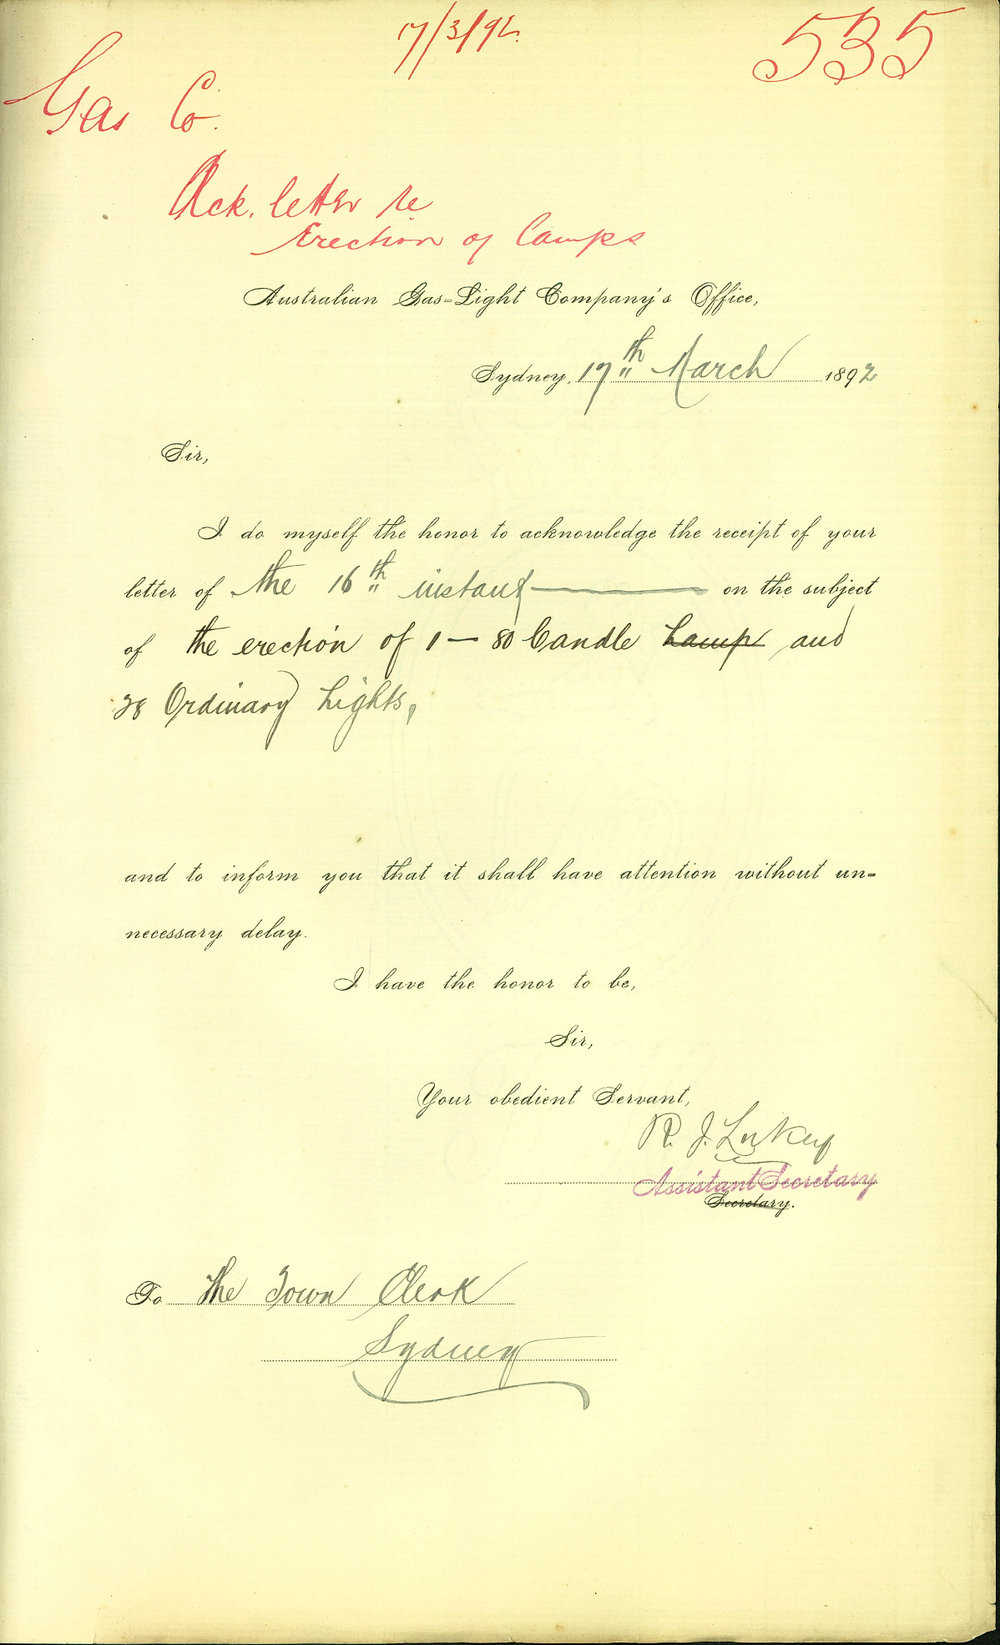 17/3/92.
535
Gas Co.
Ack. letter re
Erection of Lamps
Australian Gas-Light Company's Office,
Sydney, 17th March 1892
Sir,
I do myself the honor to acknowledge the receipt of your
letter of the 16th instant — on the subject
of the erection of 1 - 80 Candle Lamp and
28 Ordinary Lights,
and to inform you that it shall have attention without un-
necessary delay.
I have the honor to be,
Sir,
Your obedient Servant,
R. J.
Assistant Secretary
Secretary.
To The Town Clerk
Sydney